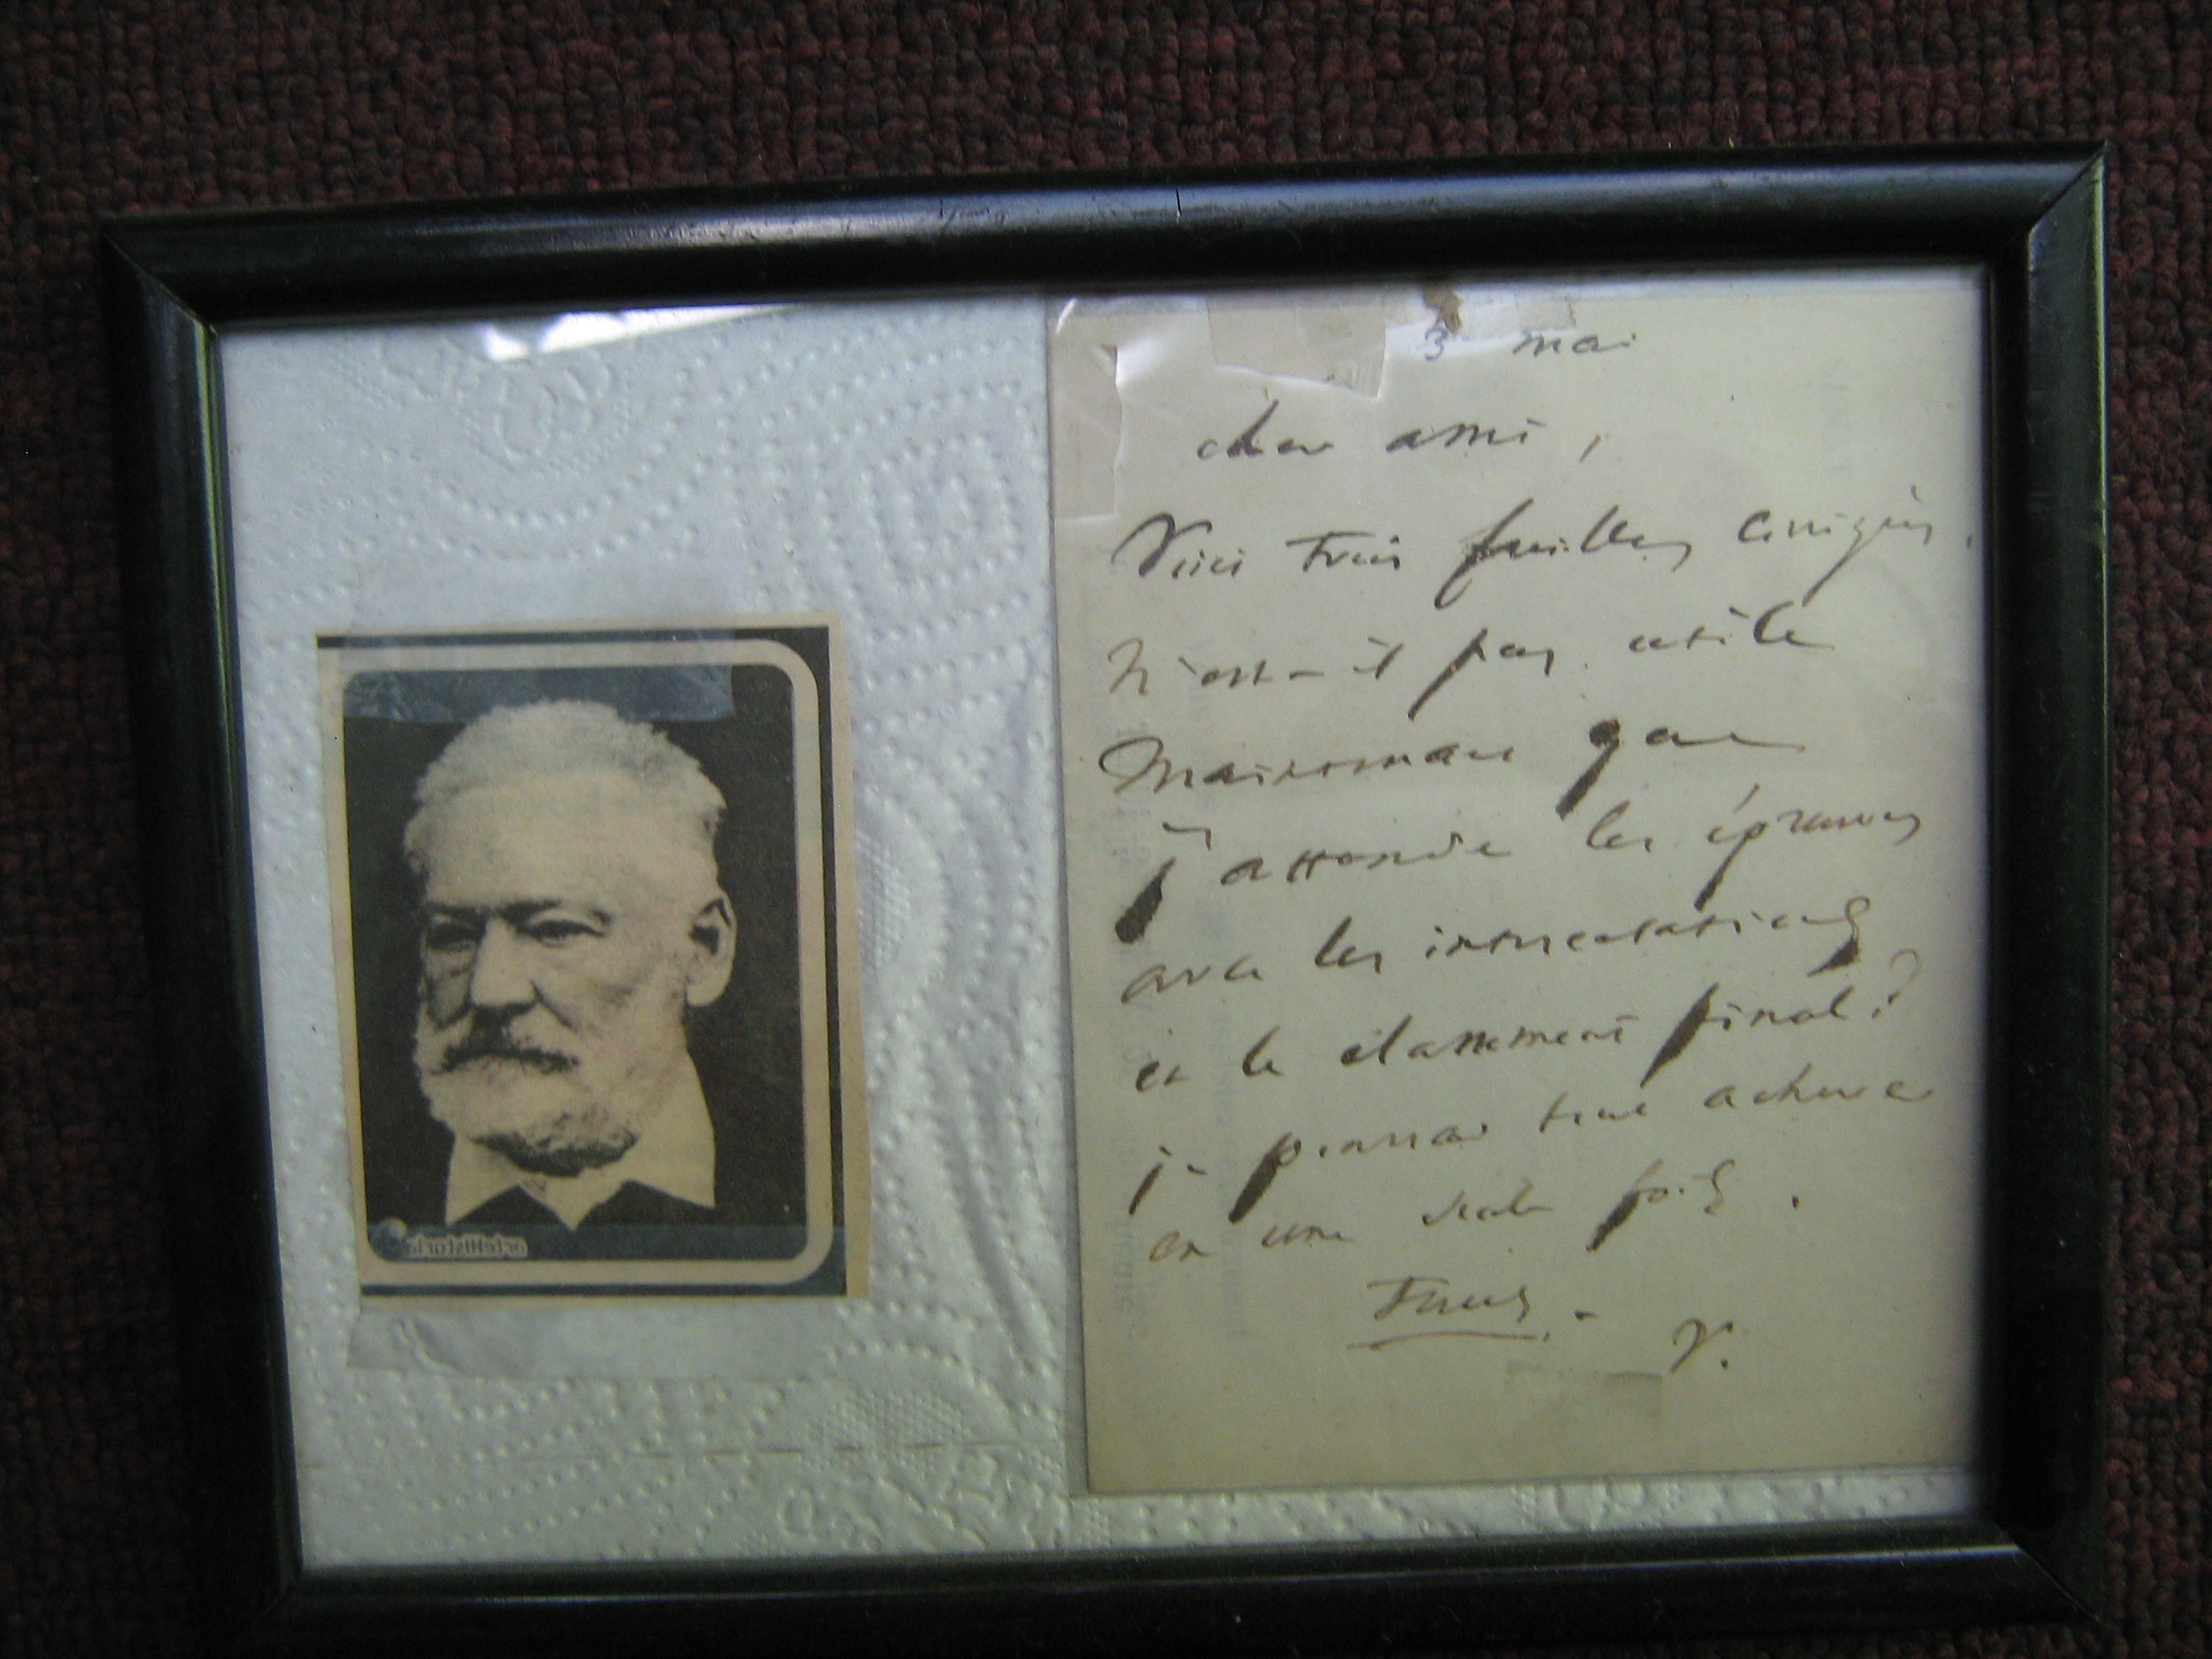 3 mai
cher ami,
Voici trois feuilles corrigées.
N'est-il pas utile
maintenant que
j'attende les épreuves
avec les intercalations
et le classement final?
je pourrai tout achever
en une seule fois.
Tuus. -
V.
arteHistoria